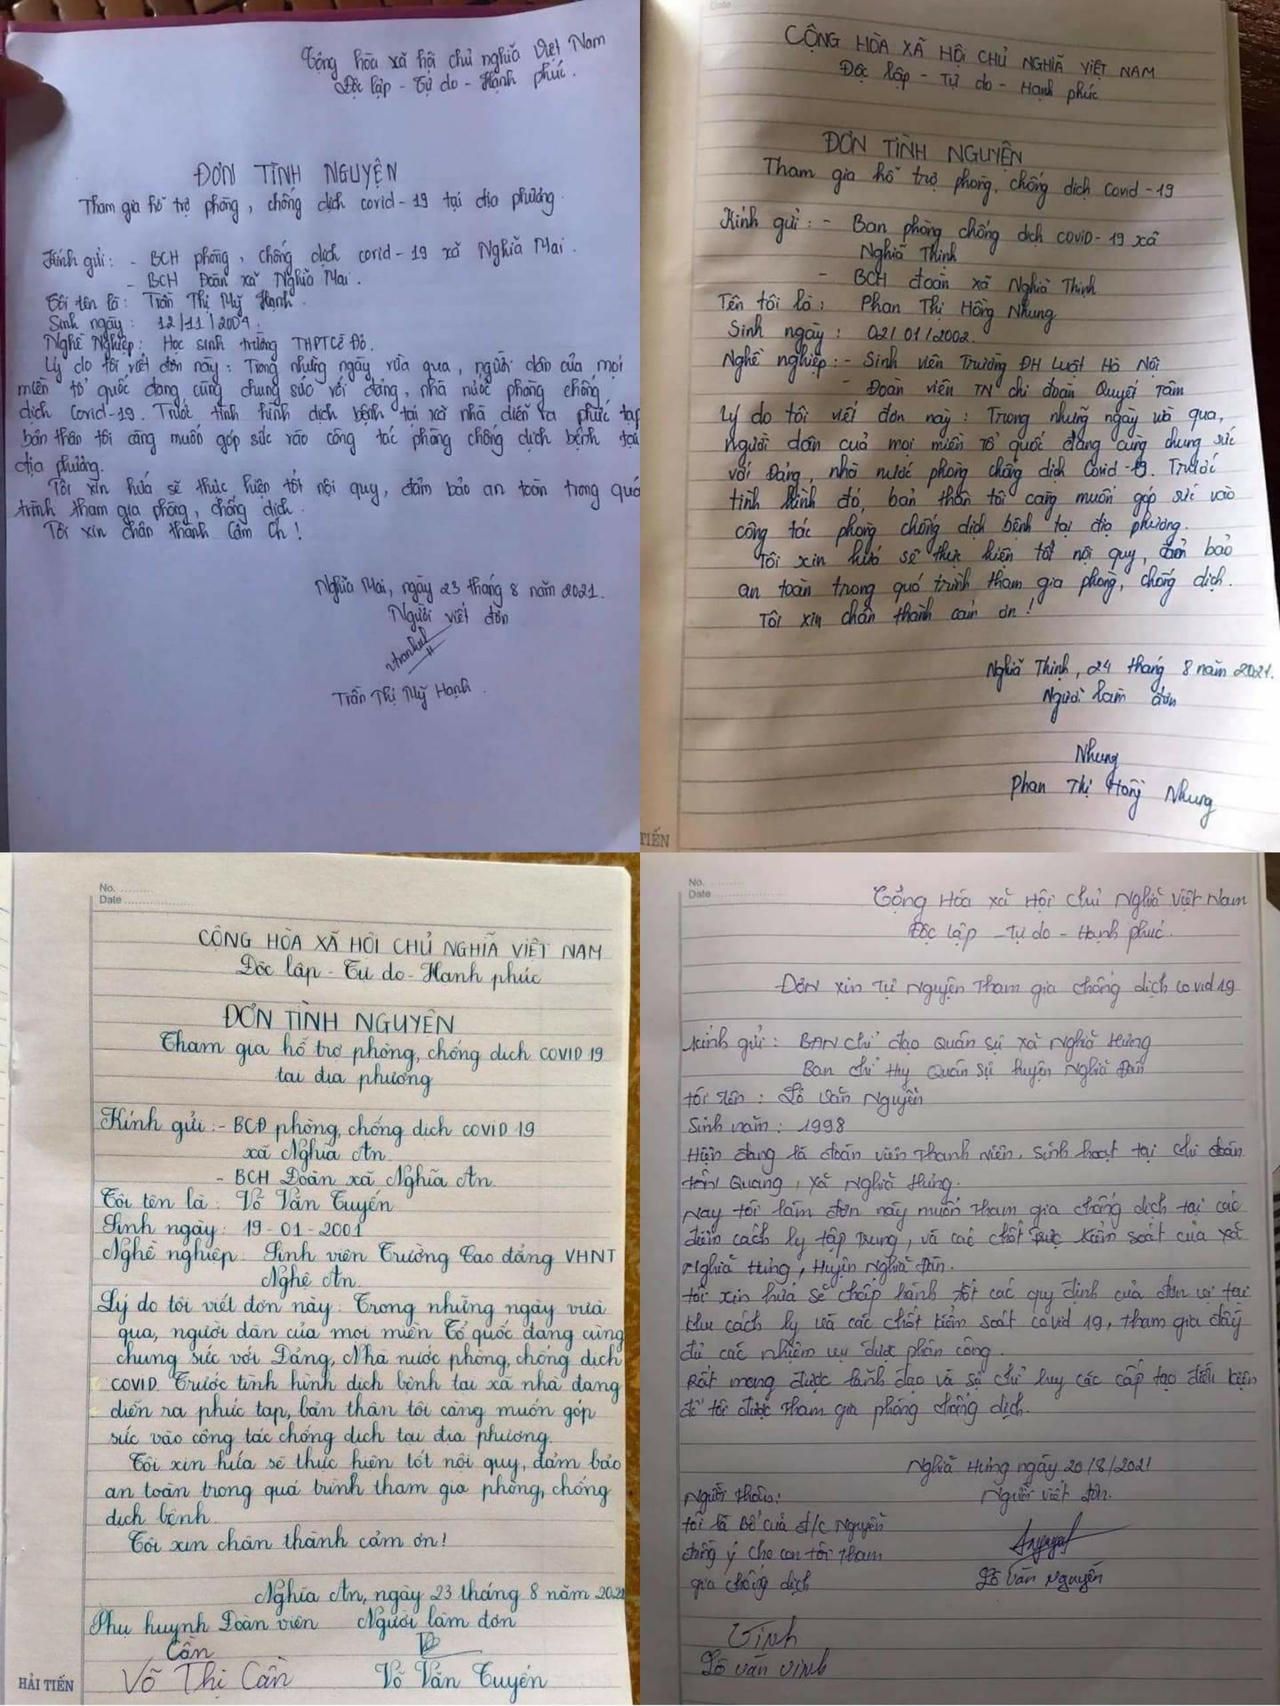 Cộng hòa xã hội chủ nghĩa Việt Nam
Độc lập - Tự do - Hạnh phúc.
ĐƠN TÌNH NGUYỆN
Tham gia hỗ trợ phòng, chống dịch covid-19 tại địa phương.
Kính gửi: - BCH phòng, chống dịch covid-19 xã Nghĩa Mai.
- BCH Đoàn xã Nghĩa Mai.
Tôi tên là: Trần Thị Mỹ Hạnh.
Sinh ngày: 12/11/2004.
Nghề Nghiệp: Học sinh trường THPT Cờ Đỏ.
Lý do tôi viết đơn này: Trong những ngày vừa qua, người dân của mọi
miền tổ quốc đang cùng chung sức với đảng, nhà nước phòng chống
dịch Covid-19. Trước tình hình dịch bệnh tại xã nhà diễn ra phức tạp
bản thân tôi cũng muốn góp sức vào công tác phòng chống dịch bệnh tại
địa phương.
Tôi xin hứa sẽ thực hiện tốt nội quy, đảm bảo an toàn trong quá
trình tham gia phòng, chống dịch.
Tôi xin chân thành Cảm Ơn!
Nghĩa Mai, ngày 23 tháng 8 năm 2021.
Người viết đơn
Trần Thị Mỹ Hạnh.
Date
CỘNG HÒA XÃ HỘI CHỦ NGHĨA VIỆT NAM
Độc lập - Tự do - Hạnh phúc
ĐƠN TÌNH NGUYỆN
Tham gia hỗ trợ phòng, chống dịch Covid-19
Kính gửi: - Ban phòng chống dịch COVID-19 xã
Nghĩa Thịnh
- BCH đoàn xã Nghĩa Thịnh
Tên tôi là: Phan Thị Hồng Nhung
Sinh ngày: 02/01/2002.
Nghề nghiệp: - Sinh viên Trường ĐH Luật Hà Nội
- Đoàn viên TN chi đoàn Quyết Tâm
Lý do tôi viết đơn này: Trong những ngày vừa qua,
người dân của mọi miền tổ quốc đang cùng chung sức
với Đảng, nhà nước phòng chống dịch Covid-19. Trước
tình hình đó, bản thân tôi cũng muốn góp sức vào
công tác phòng chống dịch bệnh tại địa phương.
Tôi xin hứa sẽ thực hiện tốt nội quy, đảm bảo
an toàn trong quá trình tham gia phòng, chống dịch.
Tôi xin chân thành cảm ơn!
Nghĩa Thịnh, 24 tháng 8 năm 2021.
Người làm đơn
Nhung
Phan Thị Hồng Nhung
TIẾN
No.
Date
CỘNG HÒA XÃ HỘI CHỦ NGHĨA VIỆT NAM
Độc lập - Tự do - Hạnh phúc
ĐƠN TÌNH NGUYỆN
Tham gia hỗ trợ phòng, chống dịch COVID 19
tại địa phương
Kính gửi: - BCĐ phòng, chống dịch COVID 19
xã Nghĩa An.
- BCH Đoàn xã Nghĩa An.
Tôi tên là: Võ Văn Tuyến
Sinh ngày: 19-01-2001
Nghề nghiệp: Sinh viên Trường Cao đẳng VHNT
Nghệ An.
Lý do tôi viết đơn này: Trong những ngày vừa
qua, người dân của mọi miền Tổ quốc đang cùng
chung sức với Đảng, Nhà nước phòng, chống dịch
COVID. Trước tình hình dịch bệnh tại xã nhà đang
diễn ra phức tạp, bản thân tôi cũng muốn góp
sức vào công tác chống dịch tại địa phương.
Tôi xin hứa sẽ thực hiện tốt nội quy, đảm bảo
an toàn trong quá trình tham gia phòng, chống
dịch bệnh.
Tôi xin chân thành cảm ơn!
Nghĩa An, ngày 23 tháng 8 năm 2021
Phụ huynh Đoàn viên Người làm đơn
Cần
Võ Thị Cần Võ Văn Tuyến
HẢI TIẾN
No.
Date
Cộng Hòa xã Hội chủ Nghĩa Việt Nam
Độc lập - Tự do - Hạnh phúc.
Đơn xin Tự Nguyện Tham gia chống dịch covid 19
Kính gửi: BAN chỉ đạo Quân sự xã Nghĩa Hưng
Ban chỉ Huy Quân sự huyện Nghĩa Đàn
tôi tên: Lô Văn Nguyên
Sinh năm: 1998
Hiện đang là đoàn viên Thanh niên, Sinh hoạt tại chi đoàn
tân Quang, xã Nghĩa Hưng.
Nay tôi làm đơn này muốn Tham gia chống dịch tại các
điểm cách ly tập trung, và các chốt trực kiểm soát của xã
Nghĩa Hưng, Huyện Nghĩa Đàn.
tôi xin hứa sẽ chấp hành tốt các quy định của đơn vị tại
khu cách ly và các chốt kiểm soát covid 19, tham gia đầy
đủ các nhiệm vụ được phân công.
Rất mong được lãnh đạo và sự chỉ huy các cấp tạo điều kiện
để tôi được tham gia phòng chống dịch.
Nghĩa Hưng ngày 20/8/2021
Người thân: Người viết đơn.
tôi là Bố của đ/c Nguyên
đồng ý cho con tôi tham
gia chống dịch Lô Văn Nguyên
Vinh
Lô Văn Vinh